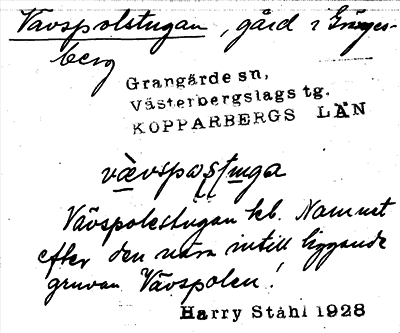 Vävspolstugan, gård i Gränges-
berg
Grangärde sn,
Västerbergslags tg.
KOPPARBERGS LÄN
vävspolstugan kb. Namnet
efter den nära intill liggande
gruvan Vävspolen!
Harry Ståhl 1928